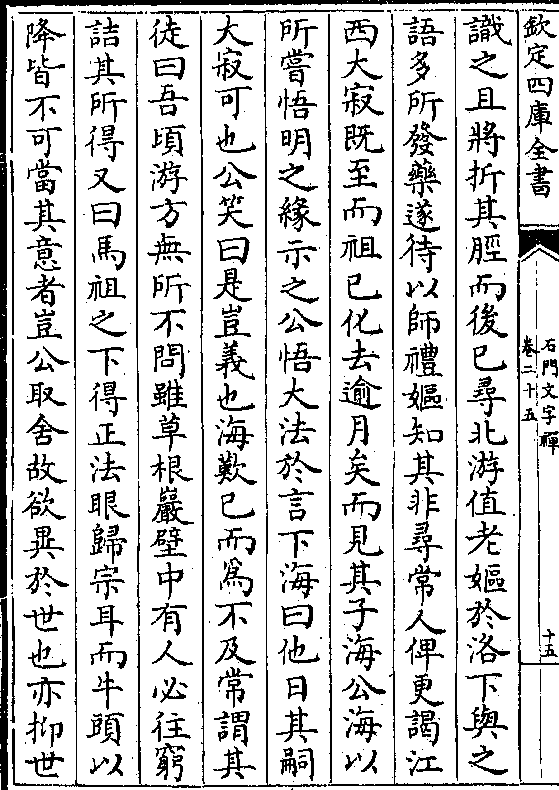 欽定四庫全書
石門文字禪
卷二十五
十五
識之且將折其脛而後已尋北游值老嫗於洛下與之
語多所發藥遂待以師禮嫗知其非尋常人俾更謁江
西大寂既至而祖已化去逾月矣而見其子海公海以
所嘗悟明之緣示之公悟大法於言下海曰他日其嗣
大寂可也公笑曰是豈義也海歎已而為不及常謂其
徒曰吾頃游方無所不問雖草根巖壁中有人必往窮
詰其所得又曰馬祖之下得正法眼歸宗耳而牛頭以
降皆不可當其意者豈公取舍故欲異於世也亦抑世